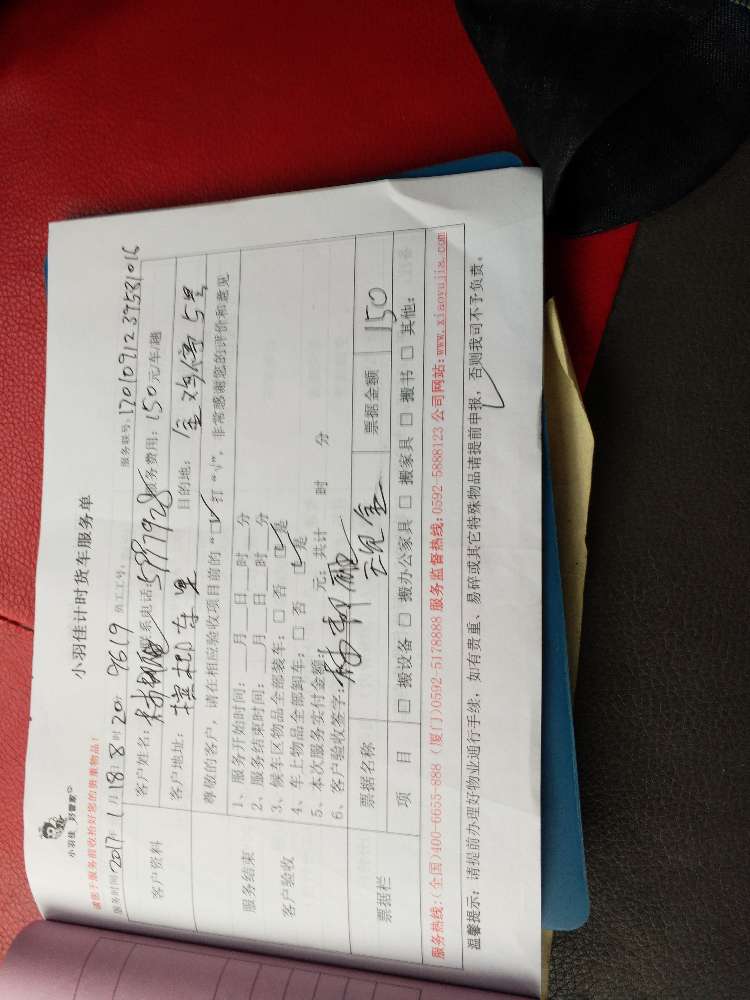 小羽佳 好管家
小羽佳计时货车服务单
请您于服务前收拾好您的贵重物品!
服务时间2017年1月18日8时20 9619 员工工号: 服务联号:17010912 39581016
客户资料
客户姓名: 联系电话:5997928 服务费用:150元/车/趟
客户地址: 目的地:金鸡 5号
尊敬的客户,请在相应验收项目前的“□”打“√”,非常感谢您的评价和意见
服务结束
客户验收
1、服务开始时间: 月 日 时 分
2、服务结束时间: 月 日 时 分
3、候车区物品全部装车: □ 否 □ 是
4、车上物品全部卸车: □ 否 □ 是
5、本次服务实付金额: 元; 共计 时 分
6、客户验收签字:
票据栏
票据名称 现金 票据金额 150
项 目 □ 搬设备 □ 搬办公家具 □ 搬家具 □ 搬书 □ 其他:
服务热线:(全国)400-6655-888 (厦门)0592-5178888 服务监督热线:0592-5888123 公司网站:www.xiaoyujia.com
温馨提示: 请提前办理好物业通行手续, 如有贵重、易碎或其它特殊物品请提前申报, 否则我司不予负责。